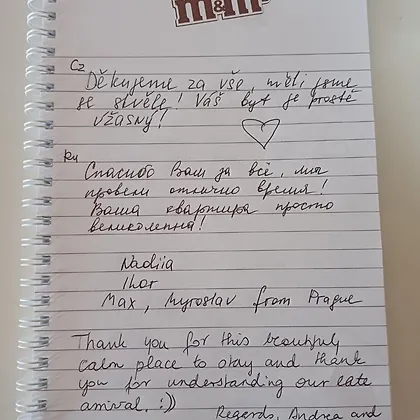 m&m
CZ
Děkujeme za vše, měli jsme
se skvěle! Váš byt je prostě
vžasný!
RU
Спасибо Вам за всё, мы
провели отлично время!
Ваша квартира просто
великолепна!
Nadiia
Ihor
Max, Myroslav from Prague
Thank you for this beautifuly
calm place to stay and thank
you for understanding our late
arrival. :))
Regards, Andrea and